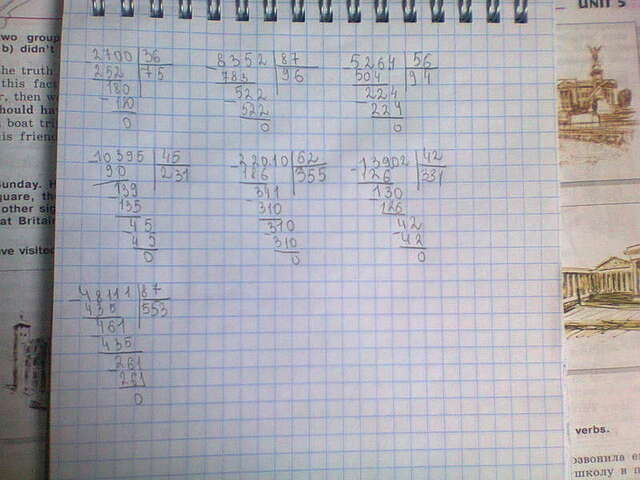 2700 36
252 75
180
- 180
0
- 8352 87
783 96
- 522
522
0
- 5264 56
504 94
- 224
224
0
- 10395 45
90 231
- 139
135
- 45
45
0
- 22010 62
186 355
- 341
310
- 310
310
0
- 13902 42
126 331
- 130
126
- 42
42
0
- 48111 87
435 553
- 461
435
- 261
261
0
wo group
b) didn't
he truth
this fact
r, then w
hould ha
boat tri
is frien
unday. H
guare, th
other sig
at Britain
ve visited
UNIT 5
verbs.
озвонила е
школу в п